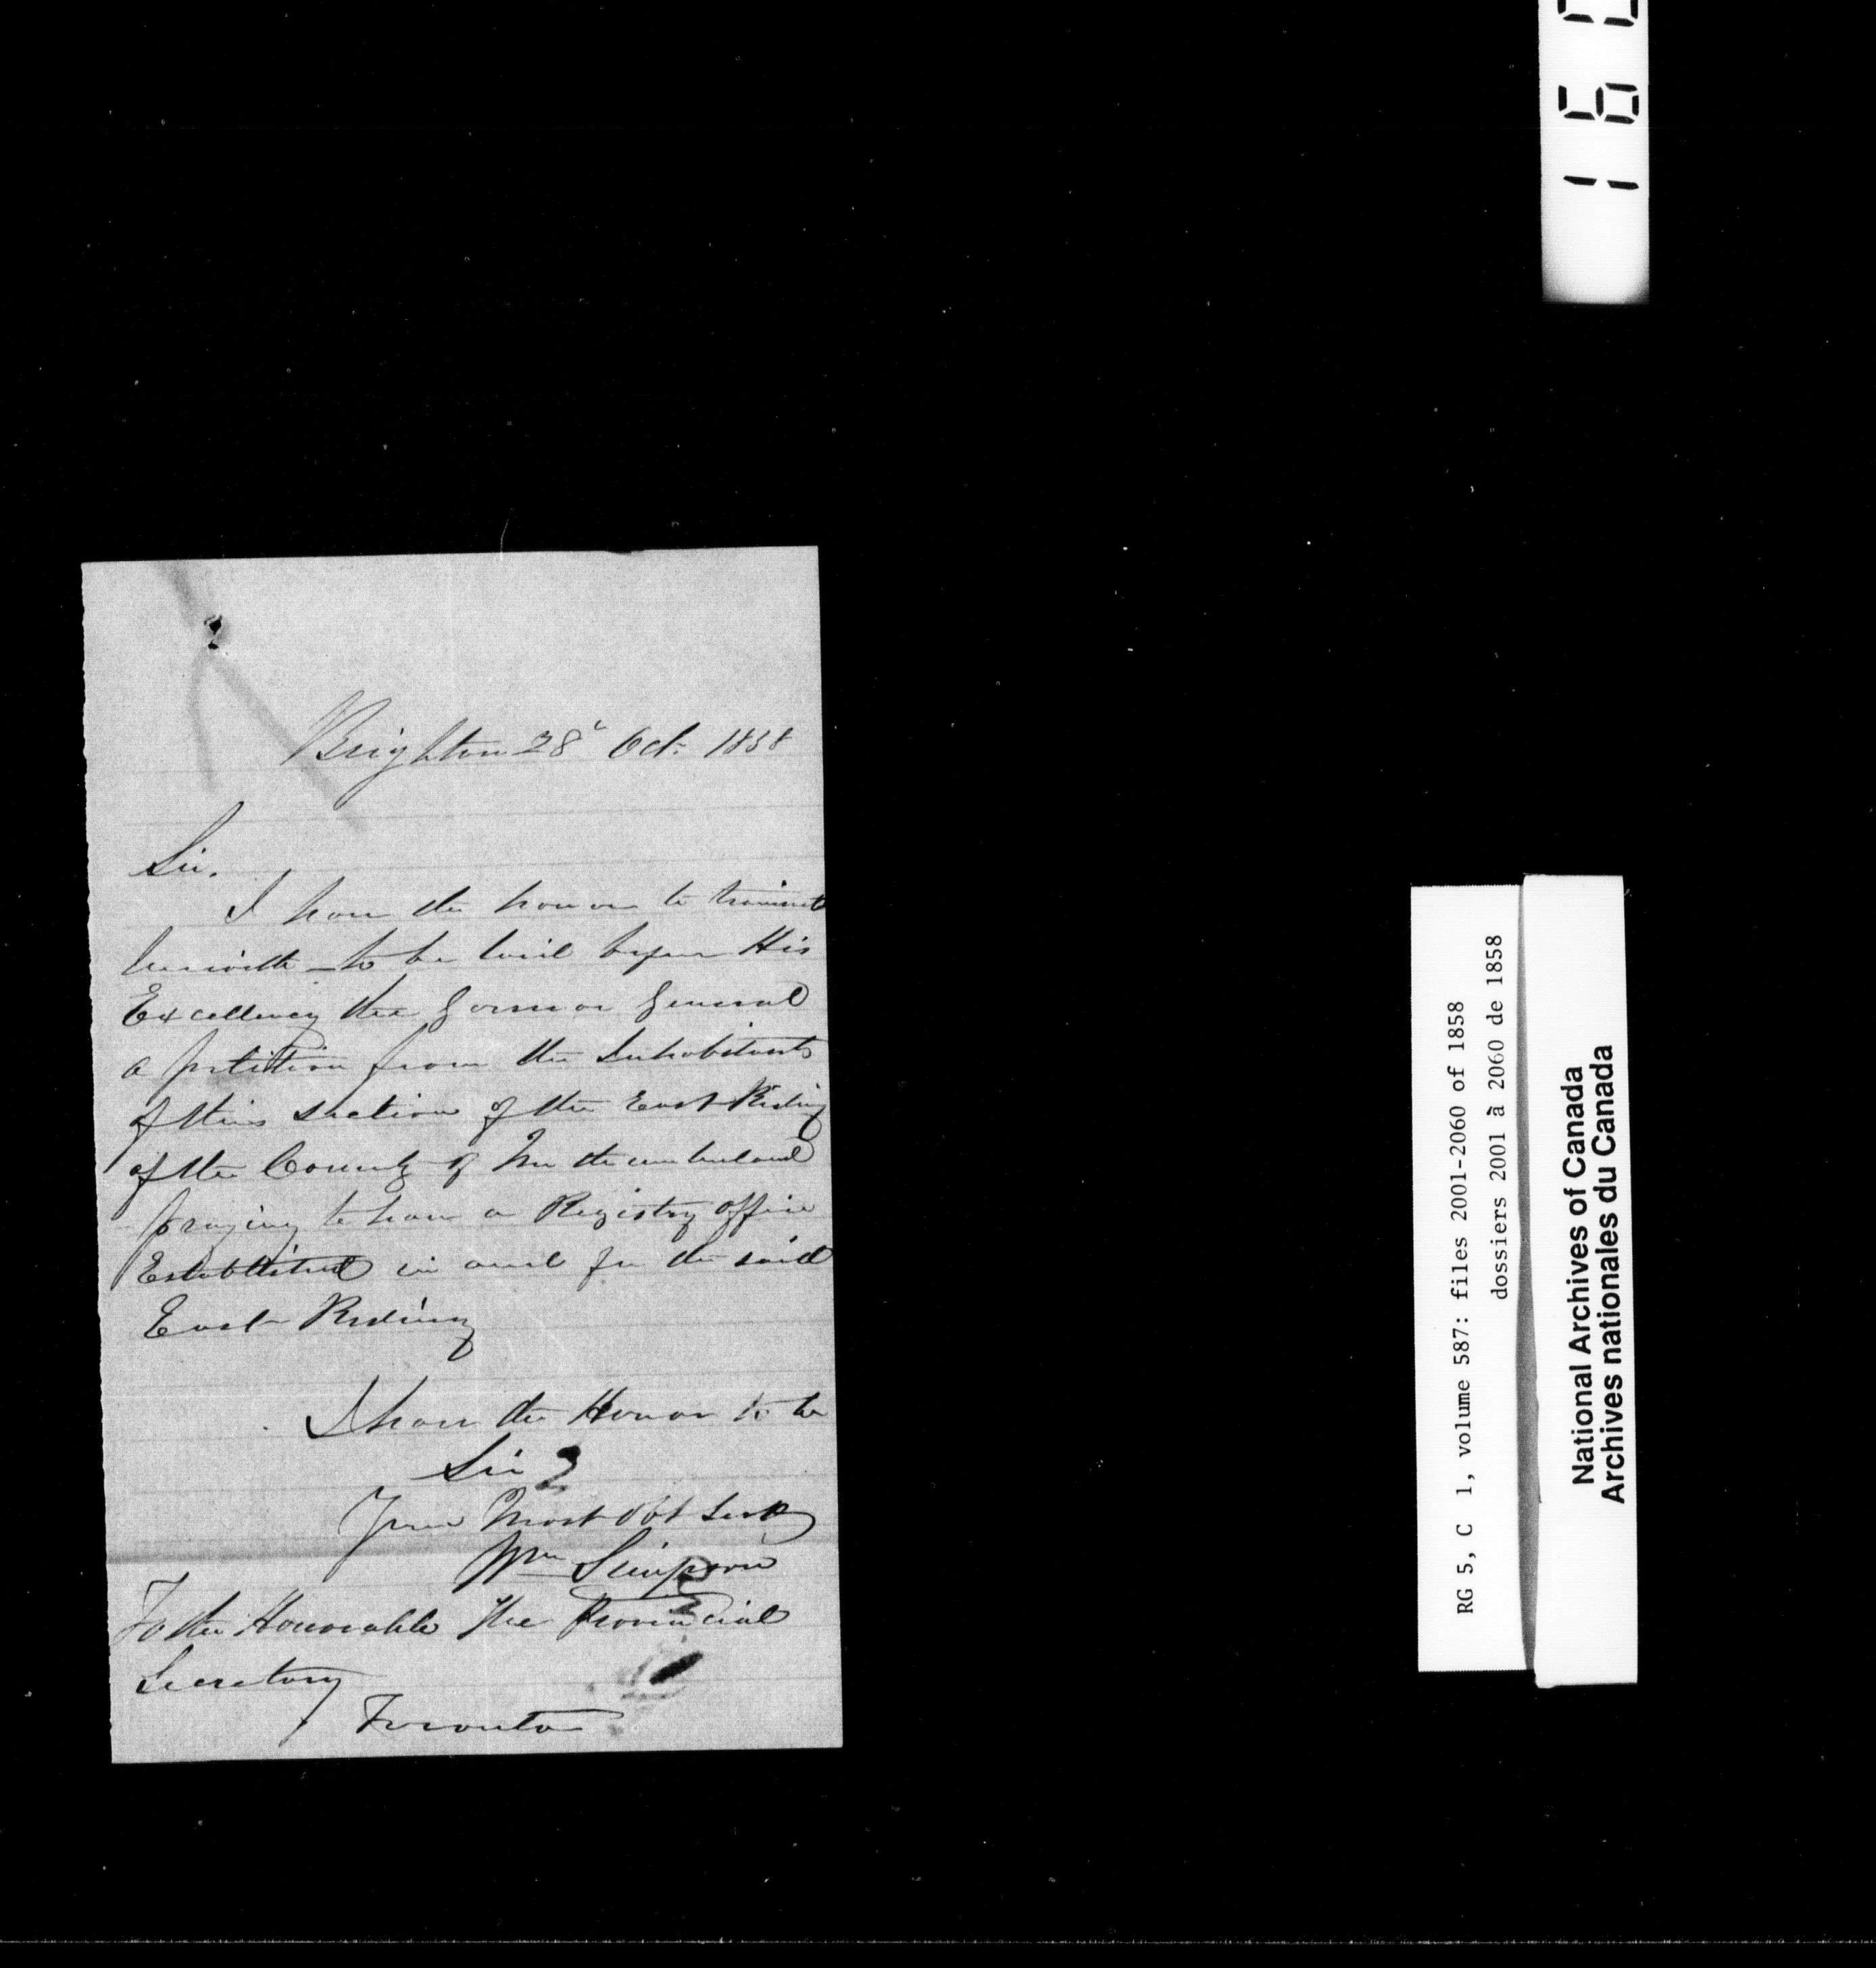 Brighton 28 Oct. 1858
Sir.
I have the honor to transmit
herewith to be laid before His
Excellency the Governor General
a petition from the Inhabitants
of this section of the East Riding
of the County of Northumberland
praying to have a Registry office
Established in and for the said
East Riding
I have the Honor to be
Sir
Your Most Obt Servt
Wm Simpson
To the Honorable The Provincial
Secretary
Toronto
RG 5, C 1, volume 587: files 2001-2060 of 1858
dossiers 2001 à 2060 de 1858
National Archives of Canada
Archives nationales du Canada